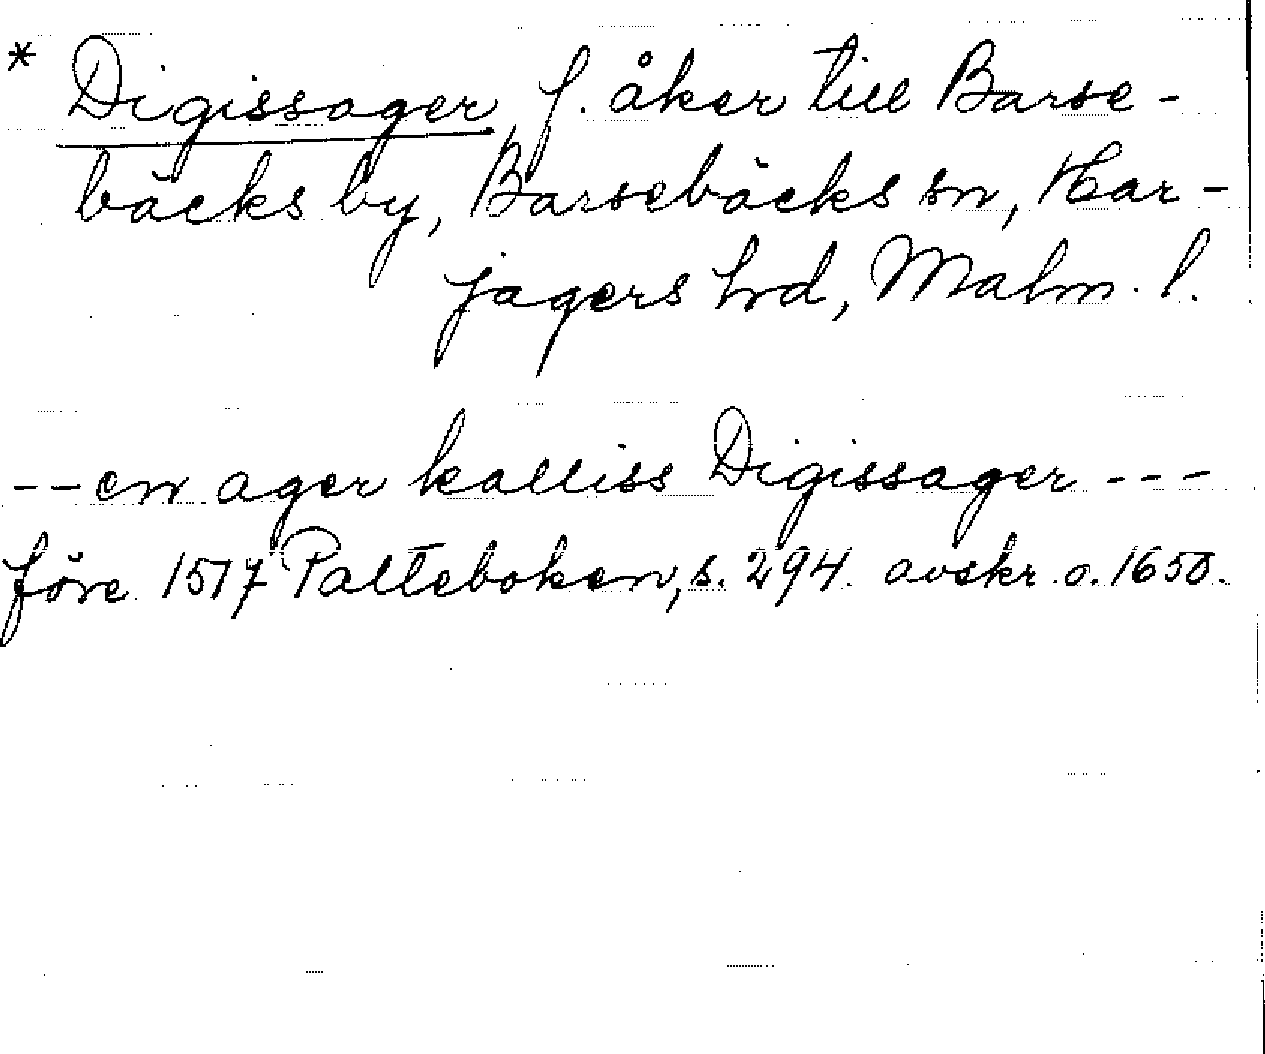 * Digissager, f. åker till Barse-
bäcks by, Barsebäcks sn, Har-
jagers hrd, Malm. l.
--en ager kalliss Digissager ---
före 1517 Palteboken, s. 294. avskr. o. 1650.